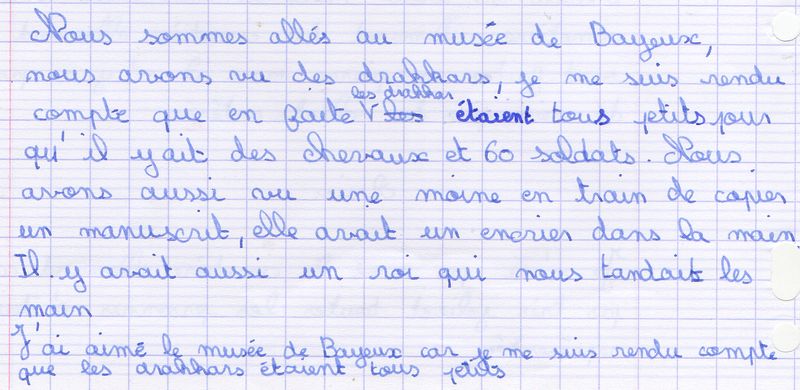 Nous sommes allés au musée de Bayeux,
nous avons vu des drakkars, je me suis rendu
les drakkar
compte que en faite étaient tous petits pour
qu'il y ait des chevaux et 60 soldats. Nous
avons aussi vu une moine en train de copier
un manuscrit, elle avait un encrier dans la main.
Il y avait aussi un roi qui nous tandait les
main
J'ai aimé le musée de Bayeux car je me suis rendu compte
que les drakkars étaient tous petits